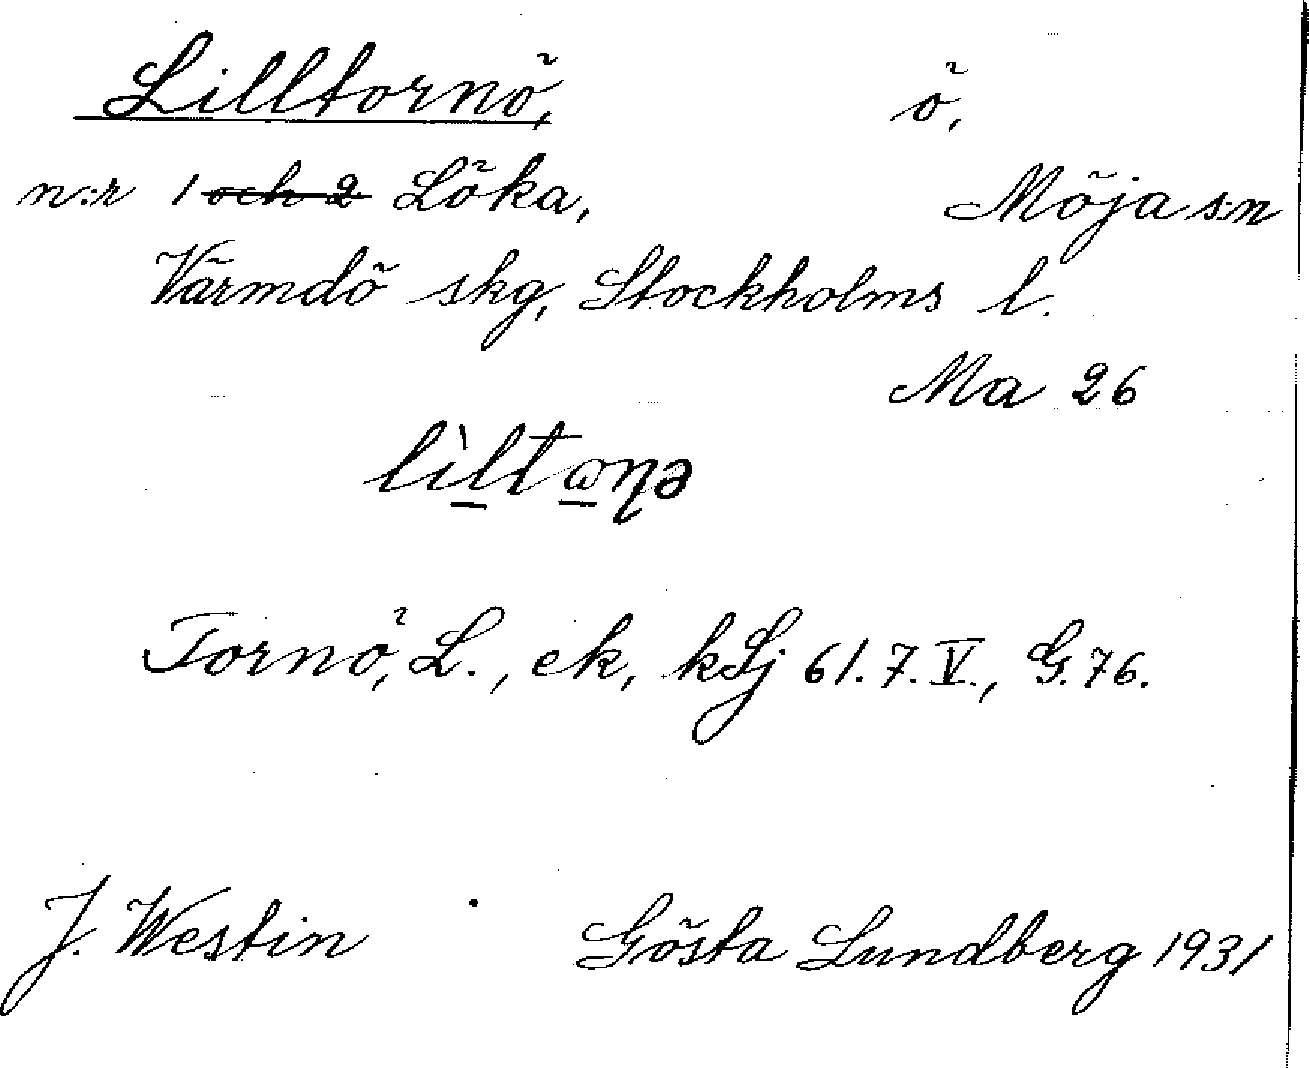 Lilltornö, ö,
n:r 1 och 2 Löka, Möja sn
Värmdö skg, Stockholms l.
Ma 26
lìltωɳə
Tornö, L., ek, kSj 61.7.V., G.76.
J. Westin Gösta Lundberg 1931